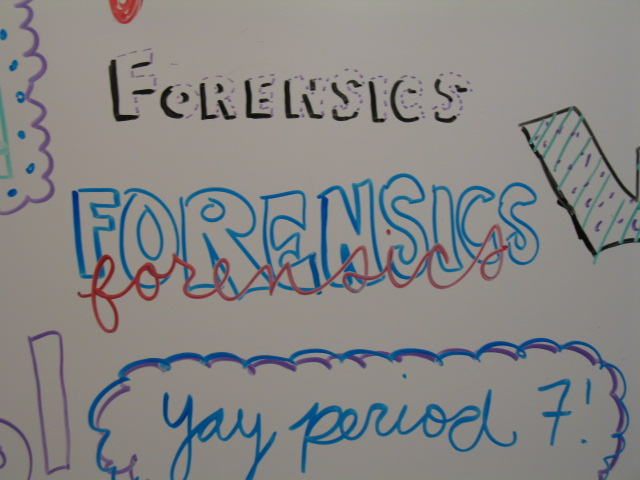 FORENSICS
FORENSICS
forensics
yay period 7!